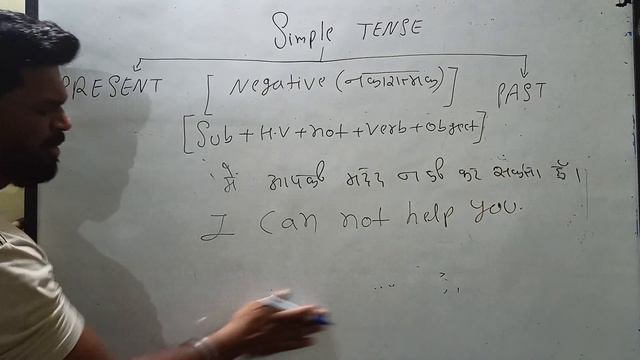 Simple TENSE
PRESENT [Negative (नकारात्मक)] PAST
[Sub+H.V+not+Verb+Object]
मैं आपकी मदद नहीं कर सकता हूँ।
I Can not help you.